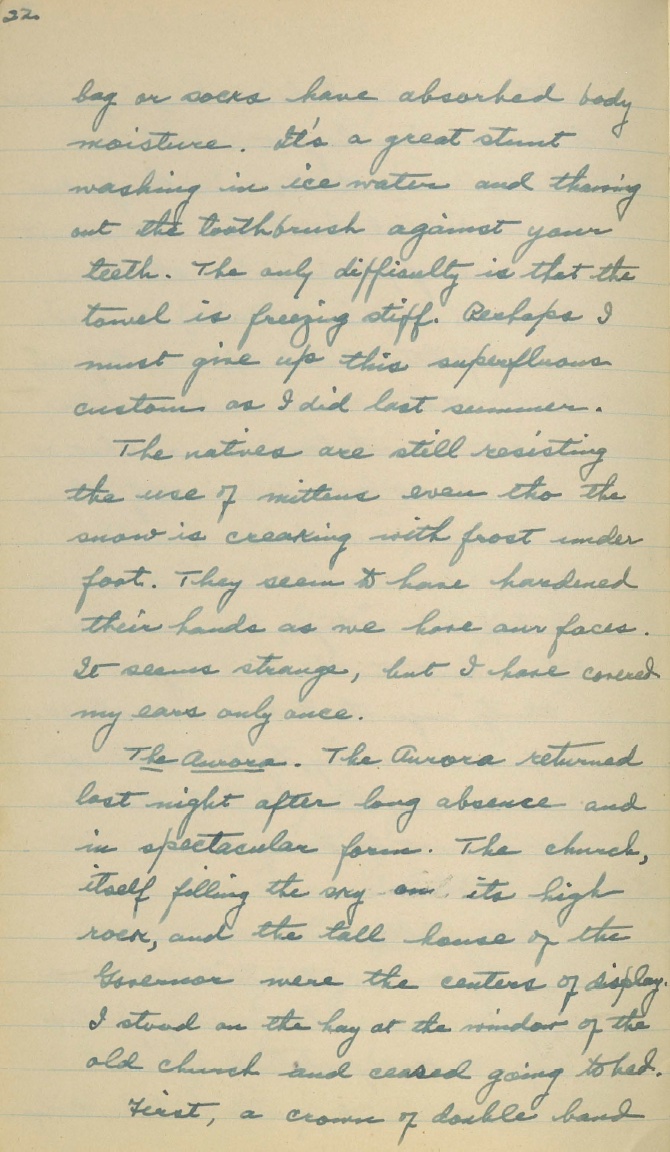 32.
bag or socks have absorbed body
moisture. It's a great stunt
washing in ice water and thawing
out the toothbrush against your
teeth. The only difficulty is that the
towel is freezing stiff. Perhaps I
must give up this superfluous
custom as I did last summer.
The natives are still resisting
the use of mittens even tho the
snow is creaking with frost under
foot. They seem to have hardened
their hands as we have our faces.
It seems strange, but I have covered
my ears only once.
The Aurora. The Aurora returned
last night after long absence and
in spectacular form. The church,
itself filling the sky on its high
rock, and the tall house of the
Governor were the centers of display.
I stood on the hay at the window of the
old church and ceased going to bed.
First, a crown of double band